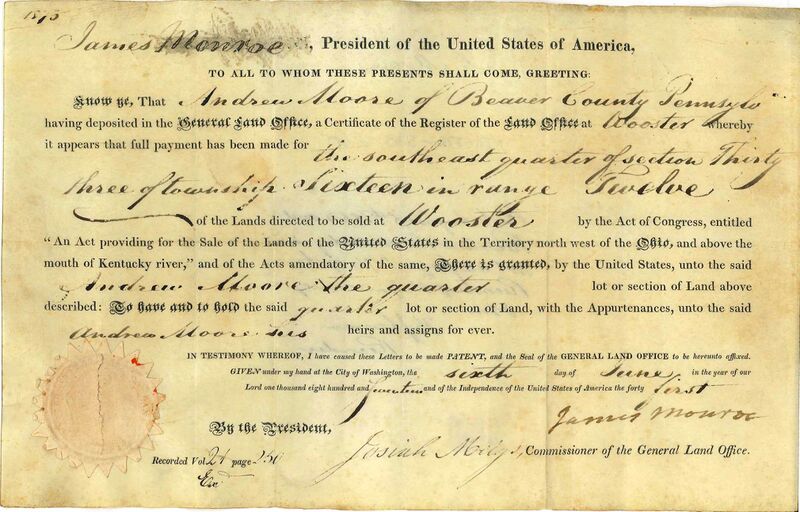 James Monroe, President of the United States of America,
TO ALL TO WHOM THESE PRESENTS SHALL COME, GREETING:
Know ye, That Andrew Moore of Beaver County Pennsylv
having deposited in the General Land Office, a Certificate of the Register of the Land Office at Wooster whereby
it appears that full payment has been made for the southeast quarter of section Thirty
three of township Sixteen in range Twelve
of the Lands directed to be sold at Wooster by the Act of Congress, entitled
"An Act providing for the Sale of the Lands of the United States in the Territory north west of the Ohio, and above the
mouth of Kentucky river," and of the Acts amendatory of the same, There is granted, by the United States, unto the said
Andrew Moore the quarter lot or section of Land above
described: To have and to hold the said quarter lot or section of Land, with the Appurtenances, unto the said
Andrew Moore his heirs and assigns for ever.
IN TESTIMONY WHEREOF, I have caused these Letters to be made PATENT, and the Seal of the GENERAL LAND OFFICE to be hereunto affixed.
GIVEN under my hand at the City of Washington, the sixth day of June in the year of our
Lord one thousand eight hundred and seventeen and of the Independence of the United States of America the forty first
James Monroe
By the President,
Josiah Meigs, Commissioner of the General Land Office.
Recorded Vol. 24 page 250